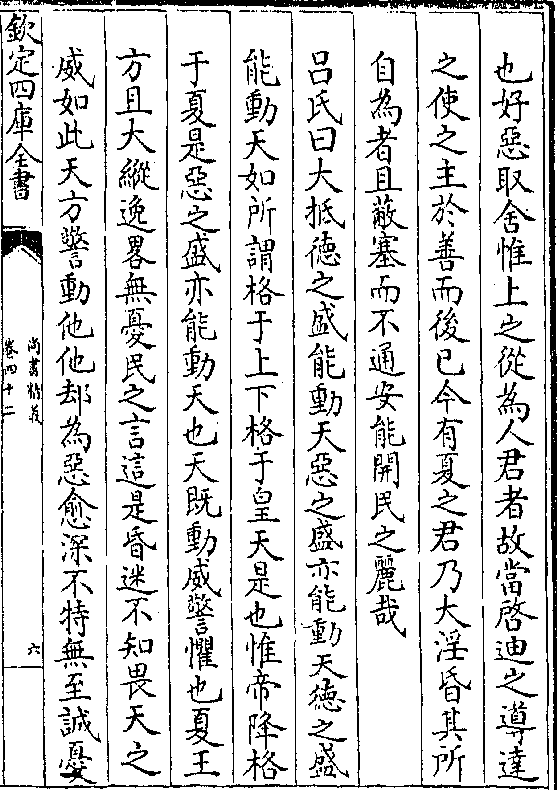 也好惡取舍惟上之從為人君者故當啓迪之導達
之使之主於善而後已今有夏之君乃大淫昏其所
自為者且蔽塞而不通安能開民之麗哉
吕氏曰大抵德之盛能動天惡之盛亦能動天德之盛
能動天如所謂格于上下格于皇天是也惟帝降格
于夏是惡之盛亦能動天也天既動威警懼也夏王
方且大縱逸畧無憂民之言這是昏迷不知畏天之
威如此天方警動他他却為惡愈深不特無至誠憂
欽定四庫全書
尚書精義
卷四十二
六